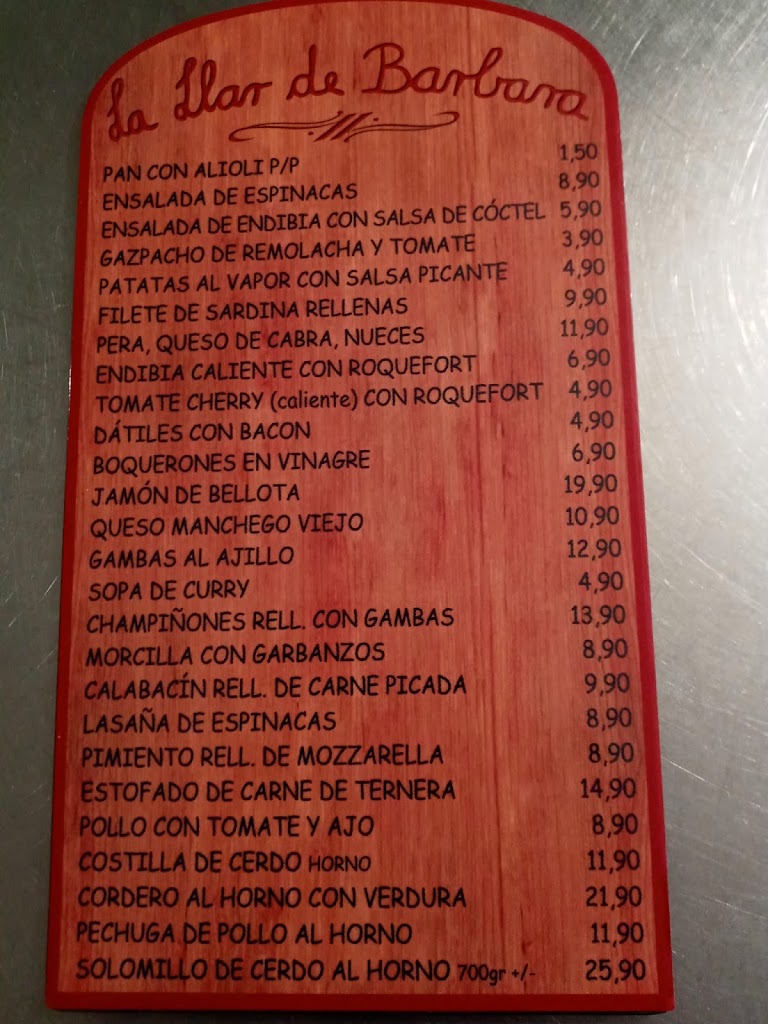 La Llar de Barbara
PAN CON ALIOLI P/P 1,50
ENSALADA DE ESPINACAS 8,90
ENSALADA DE ENDIBIA CON SALSA DE CÓCTEL 5,90
GAZPACHO DE REMOLACHA Y TOMATE 3,90
PATATAS AL VAPOR CON SALSA PICANTE 4,90
FILETE DE SARDINA RELLENAS 9,90
PERA, QUESO DE CABRA, NUECES 11,90
ENDIBIA CALIENTE CON ROQUEFORT 6,90
TOMATE CHERRY (caliente) CON ROQUEFORT 4,90
DÁTILES CON BACON 4,90
BOQUERONES EN VINAGRE 6,90
JAMÓN DE BELLOTA 19,90
QUESO MANCHEGO VIEJO 10,90
GAMBAS AL AJILLO 12,90
SOPA DE CURRY 4,90
CHAMPIÑONES RELL. CON GAMBAS 13,90
MORCILLA CON GARBANZOS 8,90
CALABACÍN RELL. DE CARNE PICADA 9,90
LASAÑA DE ESPINACAS 8,90
PIMIENTO RELL. DE MOZZARELLA 8,90
ESTOFADO DE CARNE DE TERNERA 14,90
POLLO CON TOMATE Y AJO 8,90
COSTILLA DE CERDO HORNO 11,90
CORDERO AL HORNO CON VERDURA 21,90
PECHUGA DE POLLO AL HORNO 11,90
SOLOMILLO DE CERDO AL HORNO 700gr +/- 25,90